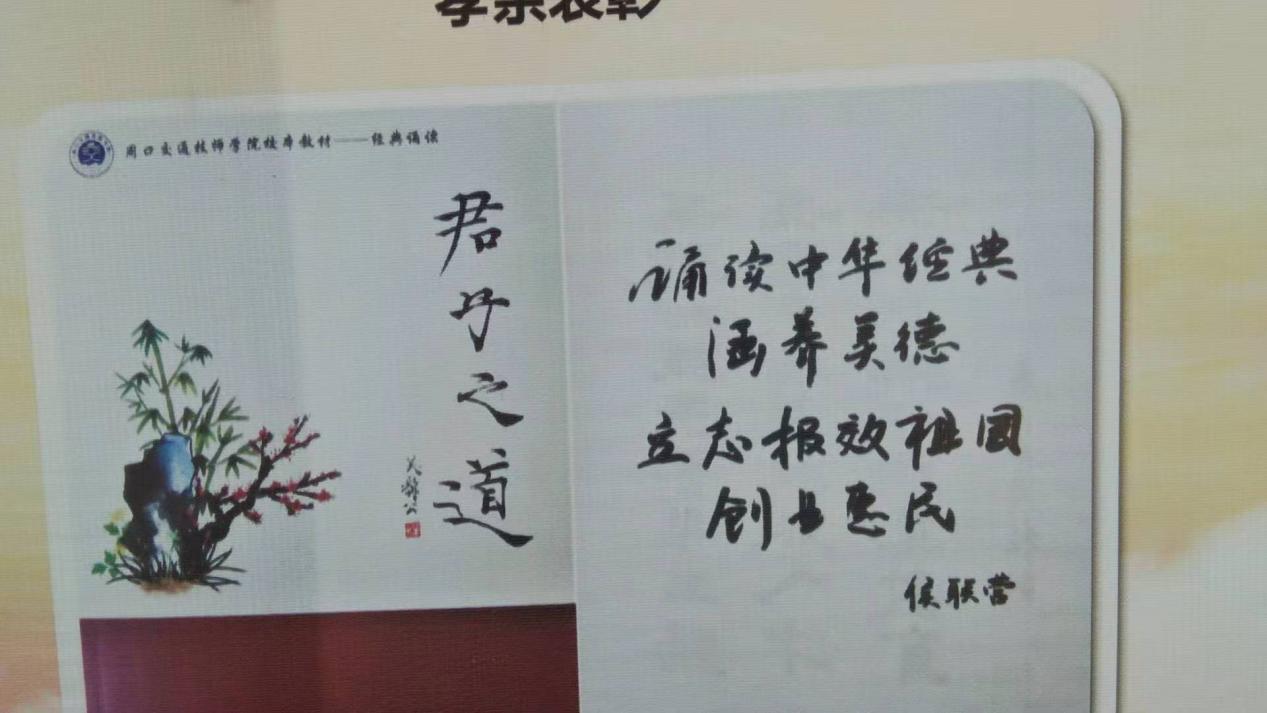 孝亲表彰
周口交通技师学院校本教材——经典诵读
君子之道
诵读中华经典
涵养美德
立志报效祖国
创业惠民
侯联营